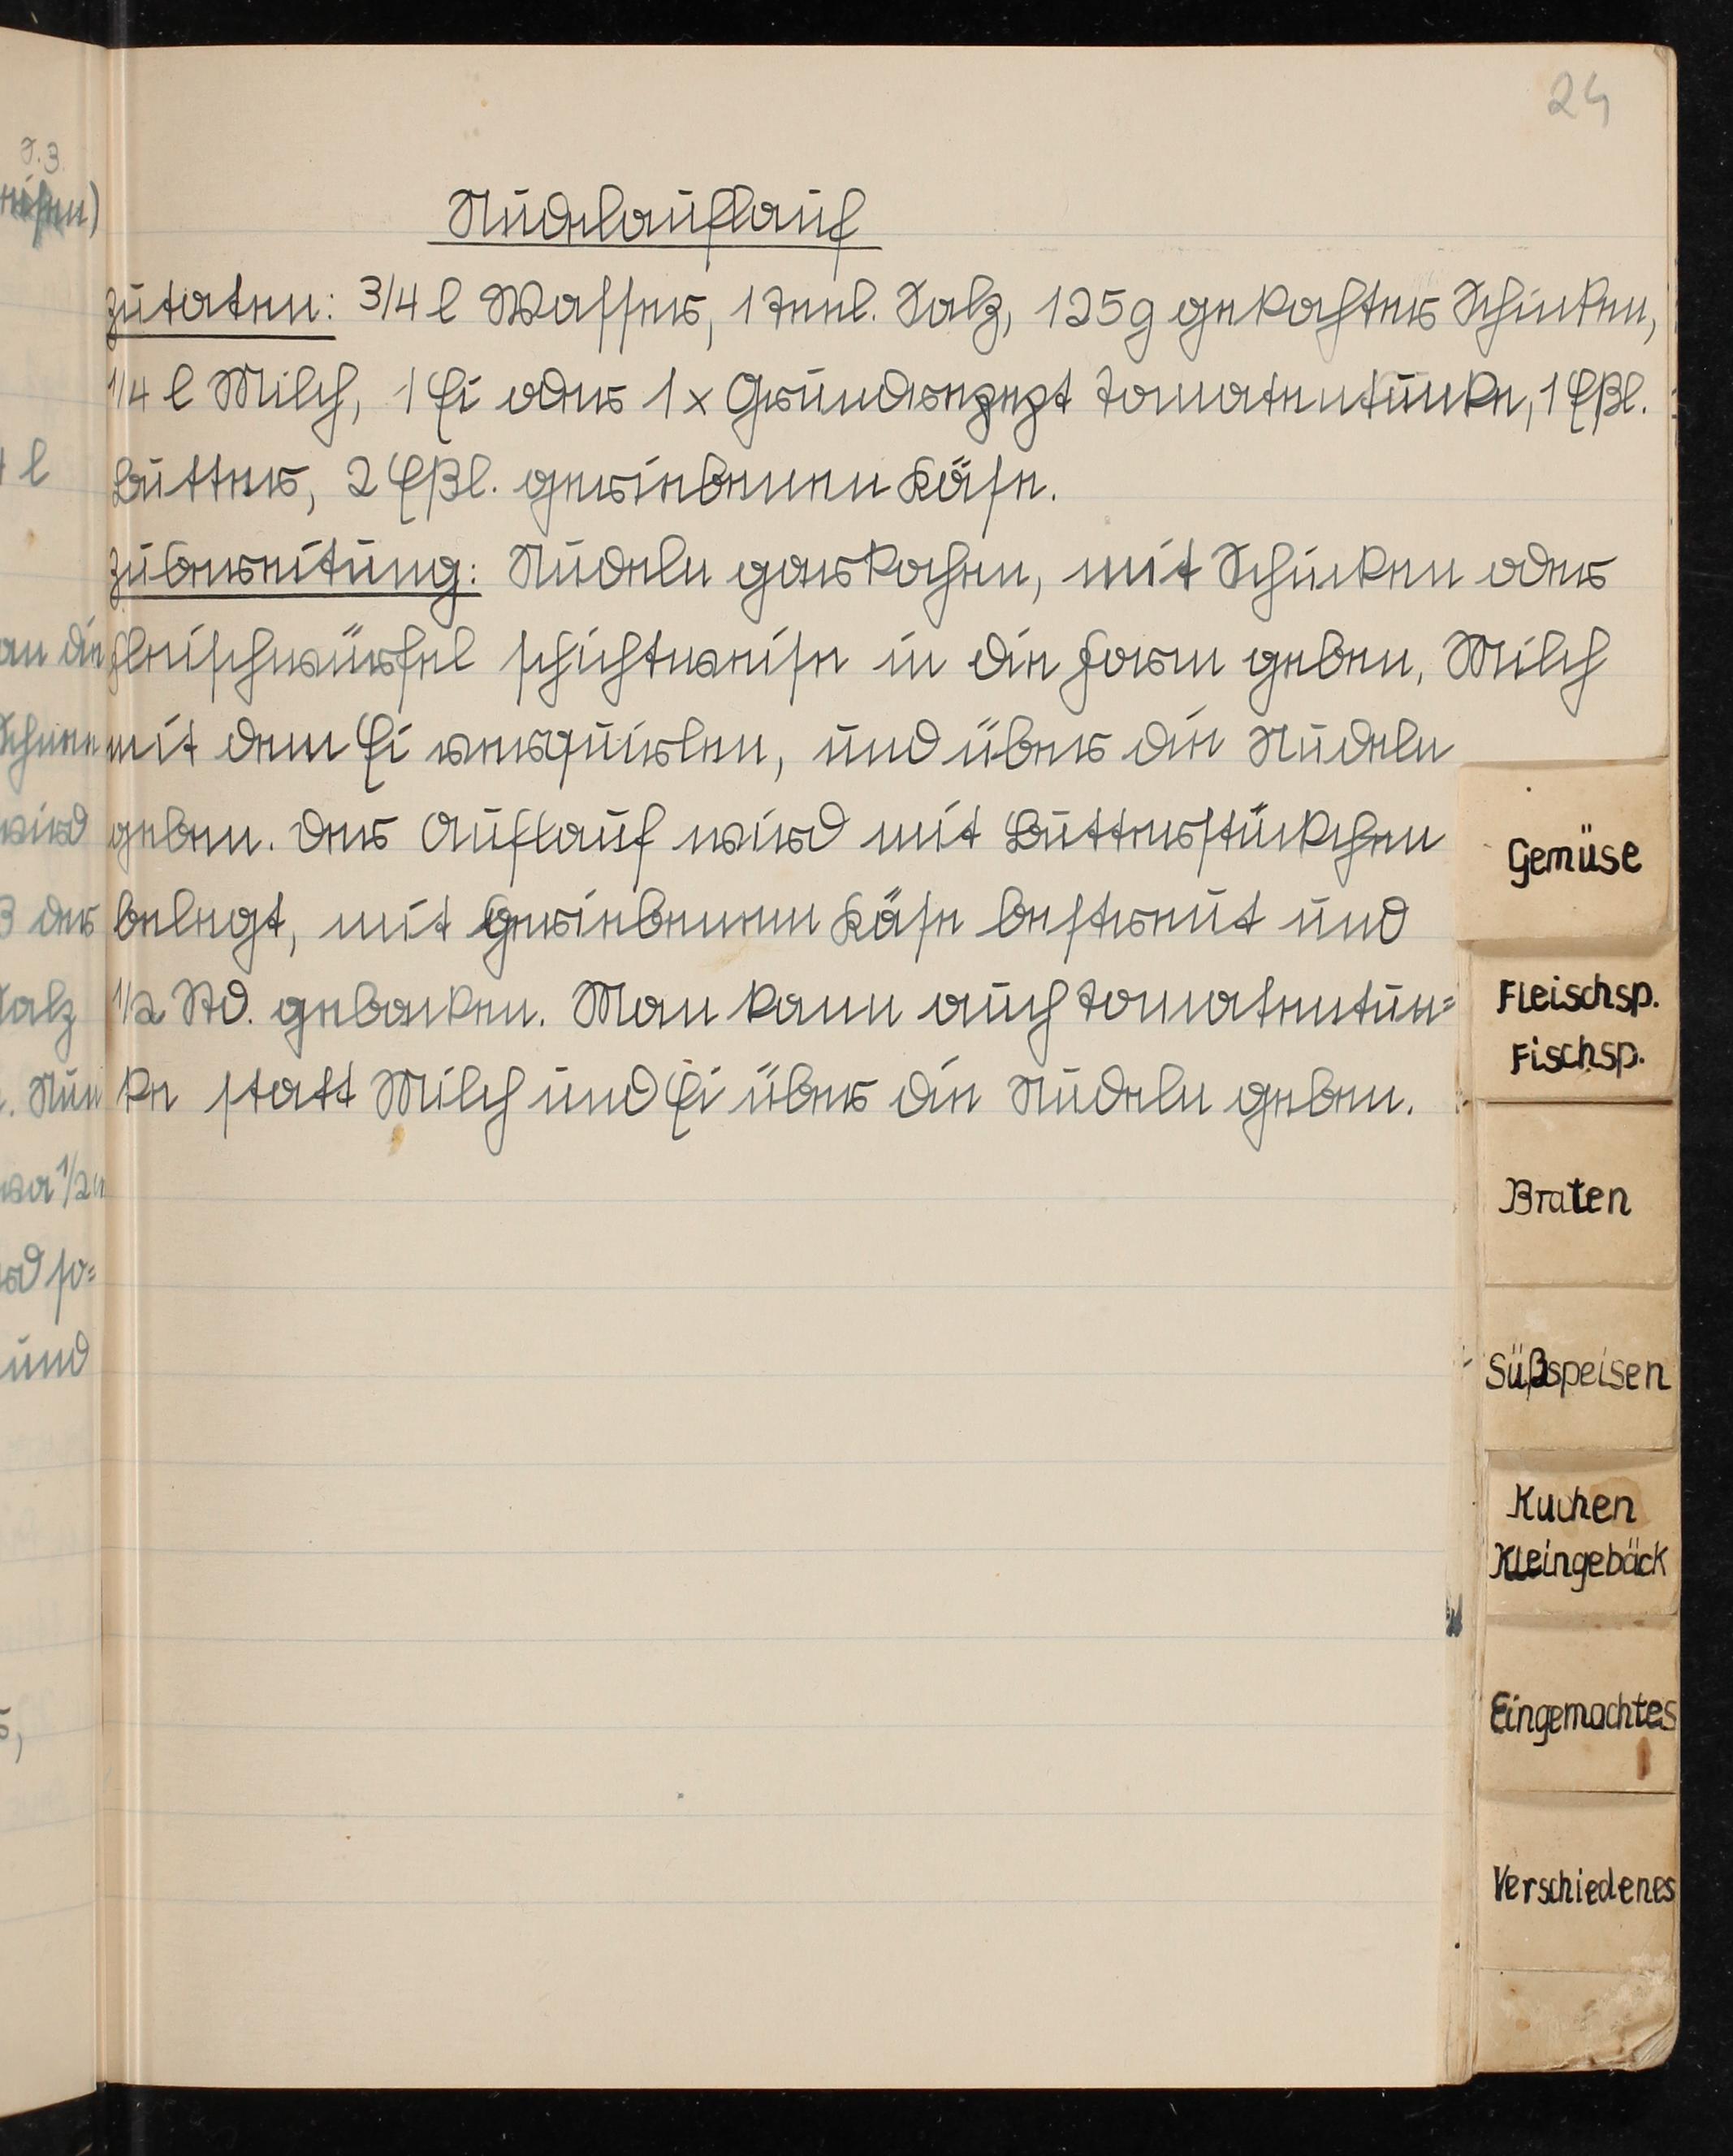 24
Nudelauflauf
Zutaten: 3/4 l Wasser, 1 Teel. Salz, 125g gekochter Schinken,
1/4 l Milch, 1 Ei oder 1x Grundrezept Tomatentunke, 1 Eßl.
Butter, 2 Eßl. geriebenen Käse.
Zubereitung: Nudeln garkochen, mit Schinken oder
Fleischwürfel schichtweise in die Form geben, Milch
mit dem Ei verquirlen, und über die Nudeln
geben. Der Auflauf wird mit Butterstückchen
belegt, mit geriebenen Käse bestreut und
1/2 Std. gebacken. Man kann auch Tomatentun=
ke statt Milch und Ei über die Nudeln geben.
Gemüse
Fleischsp.
Fischsp.
Braten
Süßspeisen
Kuchen
Kleingebäck
Eingemachtes
Verschiedenes
l
an die
wird
der
Salz
Nun
so=
und